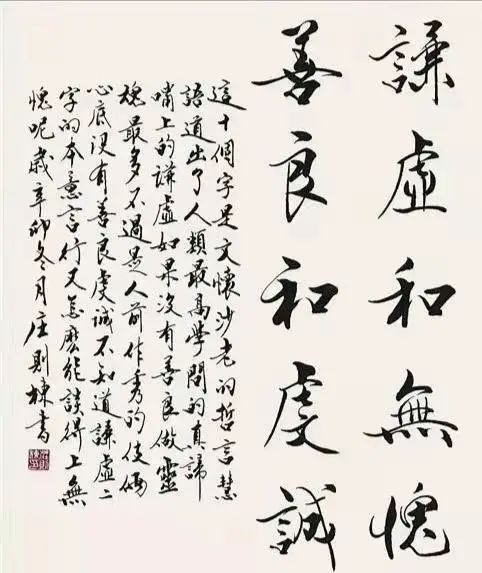 謙虛和無愧
善良和虔誠
這十個字是文懷沙老的哲言慧
語道出了人類最高學問的真諦
嘴上的謙虛如果沒有善良做靈
魂最多不過是人前作秀的伎倆
心底沒有善良虔誠不知道謙虛二
字的本意言行又怎麼能談得上無
愧呢歲辛卯冬月庄則棟書